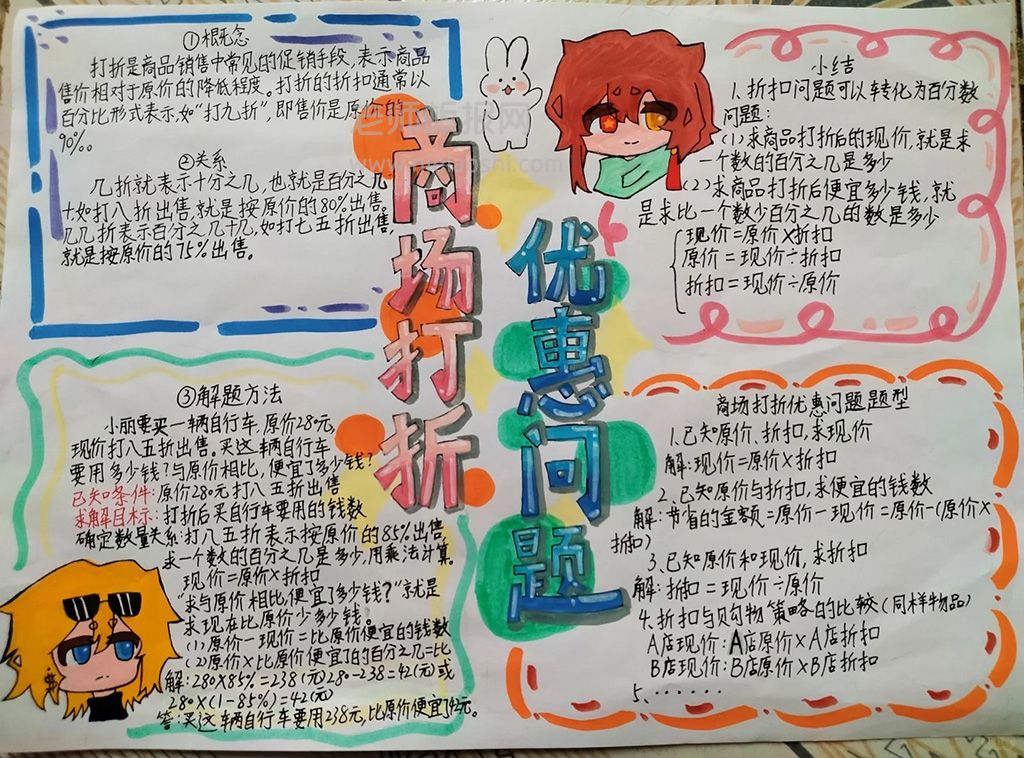 ①概念
打折是商品销售中常见的促销手段,表示商品
售价相对于原价的降低程度。打折的折扣通常以
百分比形式表示,如“打九折”即售价是原价的
90%。
②关系
几折就表示十分之几,也就是百分之几
十如打八折出售,就是按原价的80%出售。
几几折表示百分之几十几,如打七五折出售,
就是按原价的75%出售。
商场打折
优惠问题
小结
1.折扣问题可以转化为百分数
问题:
(1)求商品打折后的现价,就是求
一个数的百分之几是多少
(2)求商品打折后便宜多少钱,就
是求比一个数少百分之几的数是多少
现价=原价×折扣
原价=现价÷折扣
折扣=现价÷原价
③解题方法
小丽要买一辆自行车,原价28元,
现价打八五折出售。买这辆自行车
要用多少钱?与原价相比,便宜了多少钱?
已知条件:原价280元打八五折出售
求解目标:打折后买自行车要用的钱数
确定数量关系:打八五折表示按原价的85%出售,
求一个数的百分之几是多少,用乘法计算。
现价=原价×折扣
“求与原价相比,便宜了多少钱?”就是
求现在比原价少多少钱。
(1)原价-现价=比原价便宜的钱数
(2)原价×比原价便宜了的百分之几=比
解:280×85%=238(元)280-238=42(元)或
280×(1-85%)=42(元)
答:买这辆自行车要用238元,比原价便宜了42元。
商场打折优惠问题题型
1.已知原价、折扣,求现价
解:现价=原价×折扣
2.已知原价与折扣,求便宜的钱数
解:节省的金额=原价-现价=原价-(原价×
折扣)
3.已知原价和现价,求折扣
解:折扣=现价÷原价
4.折扣与购物策略的比较(同样物品)
A店现价:A店原价×A店折扣
B店现价:B店原价×B店折扣
5.······